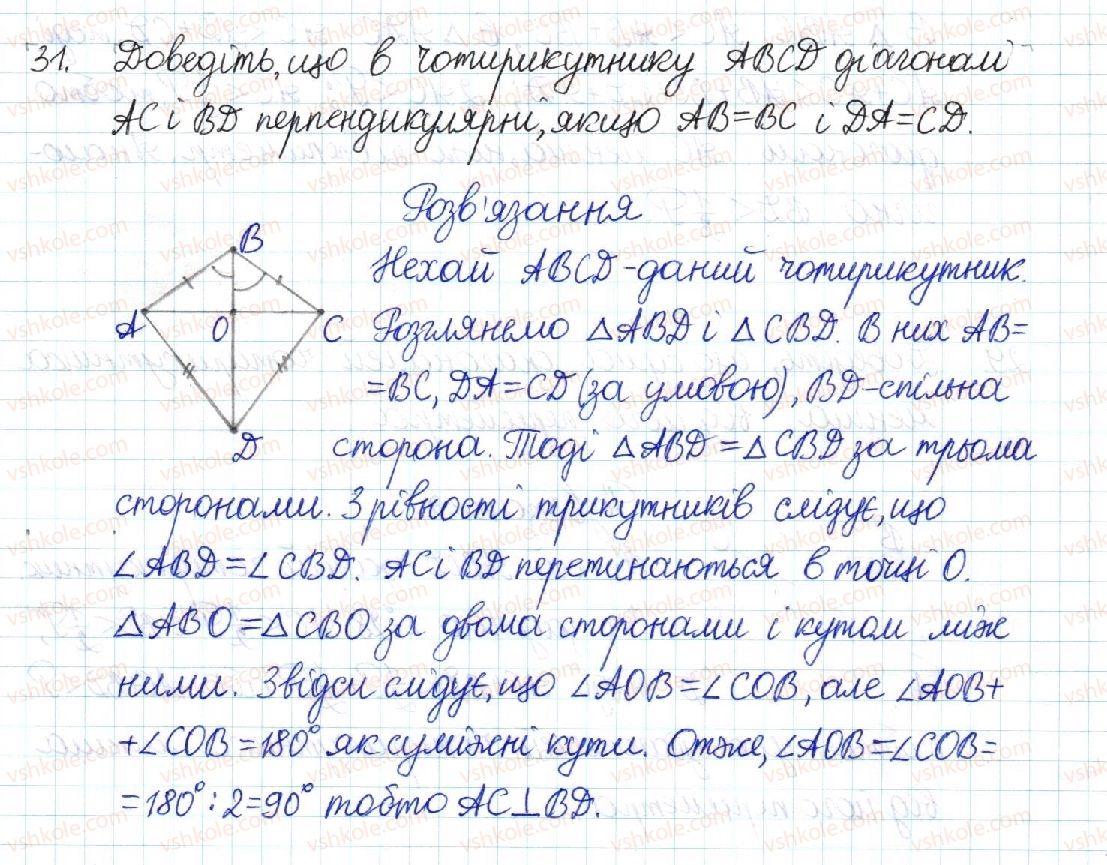 31. Доведіть, що в чотирикутнику ABCD діагоналі
AC і BD перпендикулярні, якщо AB=BC і DA=CD.
Розв'язання
B
A
O
C
D
Нехай ABCD-даний чотирикутник.
Розглянемо △ABD і △CBD. В них AB=
=BC, DA=CD (за умовою), BD-спільна
сторона. Тоді △ABD=△CBD за трьома
сторонами. З рівності трикутників слідує, що
∠ABD=∠CBD. AC і BD перетинаються в точці O.
△ABO=△CBO за двома сторонами і кутом між
ними. Звідси слідує, що ∠AOB=∠COB, але ∠AOB+
+∠COB=180° як суміжні кути. Отже, ∠AOB=∠COB=
=180°:2=90° тобто AC⊥BD.